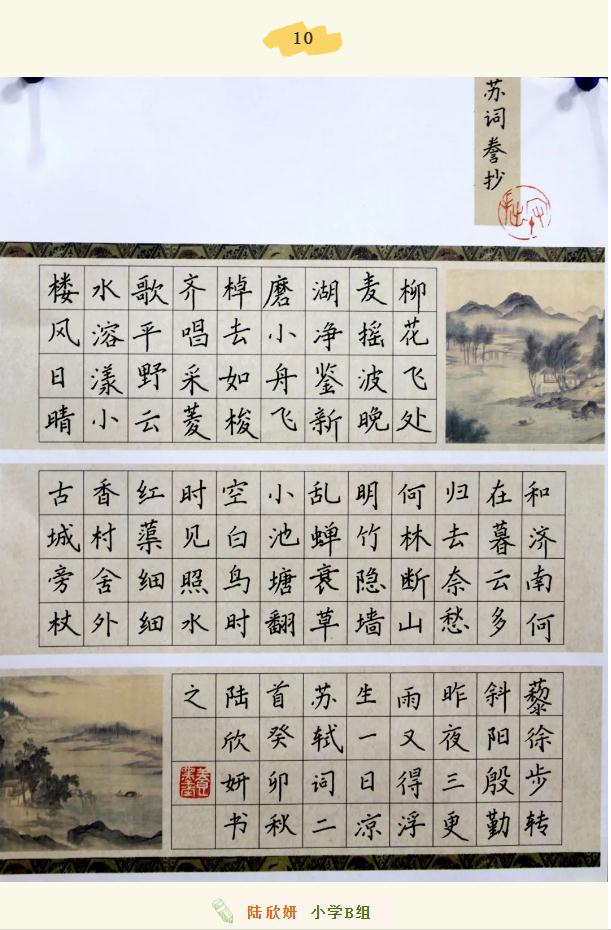 10
苏词誊抄
柳花飞处
麦摇波晚
湖净鉴新
磨小舟飞
棹去如梭
齐唱采菱
歌平野云
水溶漾小
楼风日晴
和济南何
在暮云多
归去奈愁
何林断山
明竹隐墙
乱蝉衰草
小池塘翻
空白鸟时
时见照水
红蕖细细
香村舍外
古城旁杖
藜徐步转
斜阳殷勤
昨夜三更
雨又得浮
生一日凉
苏轼词二
首癸卯秋
陆欣妍书
之
陆欣妍 小学B组